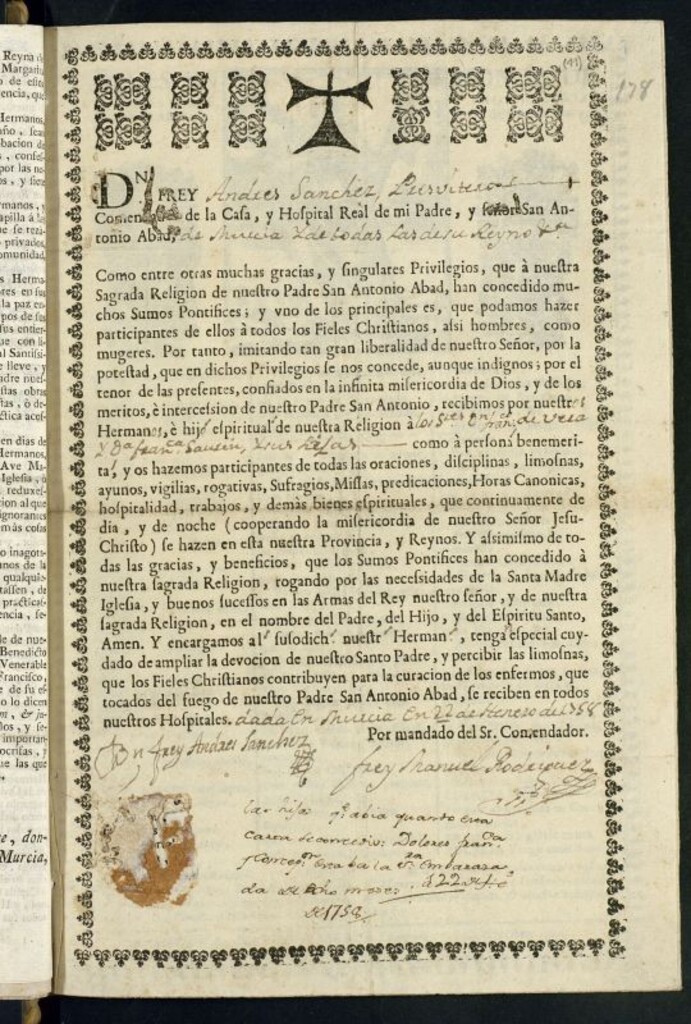 Reyna de
Margari
o de este
encia, que
Hermanos,
por las no-
capilla à la
privados,
omunidad,
s Herma-
la paz en-
l Santissi-
e lleve, y
adre nues-
stas obras
en dias de
Hermanos,
Ave Ma-
Iglesia, ò
ignorantes
emàs cosas
o inagota-
unos de la
qualquie-
tassen, de
practicas-
encia, se-
le de nue-
Benedicto
Venerable
Francisco,
e, don-
Murcia,
(41)
178
DN. FREY Andres Sanchez, Presvitero
Comendador de la Casa, y Hospital Real de mi Padre, y señor San An-
tonio Abad, de Murcia y de todas las de su Reyno &a
Como entre otras muchas gracias, y singulares Privilegios, que à nuestra
Sagrada Religion de nuestro Padre San Antonio Abad, han concedido mu-
chos Sumos Pontifices; y vno de los principales es, que podamos hazer
participantes de ellos à todos los Fieles Christianos, assi hombres, como
mugeres. Por tanto, imitando tan gran liberalidad de nuestro Señor, por la
potestad, que en dichos Privilegios se nos concede, aunque indignos; por el
tenor de las presentes, confiados en la infinita misericordia de Dios, y de los
meritos, è intercession de nuestro Padre San Antonio, recibimos por nuestros
Hermanos, è hijos espiritual de nuestra Religion à los Sres Dn Franco de Vera
y Da Franca Sausin, y sus hijas como à persona benemeri-
ta, y os hazemos participantes de todas las oraciones, disciplinas, limosnas,
ayunos, vigilias, rogativas, Sufragios, Missas, predicaciones, Horas Canonicas,
hospitalidad, trabajos, y demàs bienes espirituales, que continuamente de
dia, y de noche (cooperando la misericordia de nuestro Señor Jesu-
Christo) se hazen en esta nuestra Provincia, y Reynos. Y assimismo de to-
das las gracias, y beneficios, que los Sumos Pontifices han concedido à
nuestra sagrada Religion, rogando por las necessidades de la Santa Madre
Iglesia, y buenos sucessos en las Armas del Rey nuestro señor, y de nuestra
sagrada Religion, en el nombre del Padre, del Hijo, y del Espiritu Santo,
Amen. Y encargamos al susodich nuestr Herman , tenga especial cuy-
dado de ampliar la devocion de nuestro Santo Padre, y percibir las limosnas,
que los Fieles Christianos contribuyen para la curacion de los enfermos, que
tocados del fuego de nuestro Padre San Antonio Abad, se reciben en todos
nuestros Hospitales. dada en Murcia en 22 de Henero de 1758
Por mandado del Sr. Comendador.
Dn frey Andres Sanchez
frey Manuel Rodriguez
las hijas qe abia quando esta
carta se concedio: Dolores Franca
y Concepn estaba la Sa Embaraza
da de ocho meses: à 22 de
de 1758